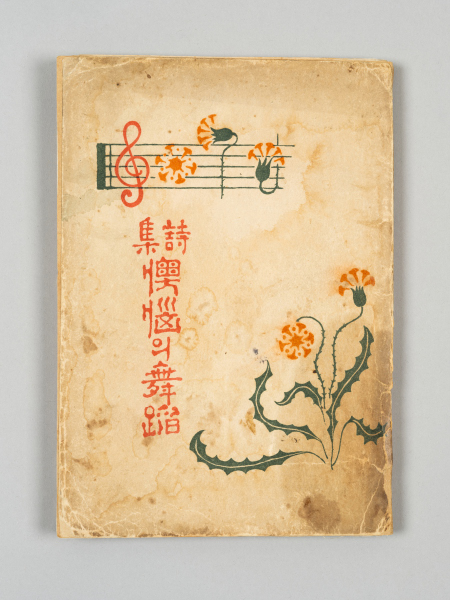 詩集
懊惱의舞蹈